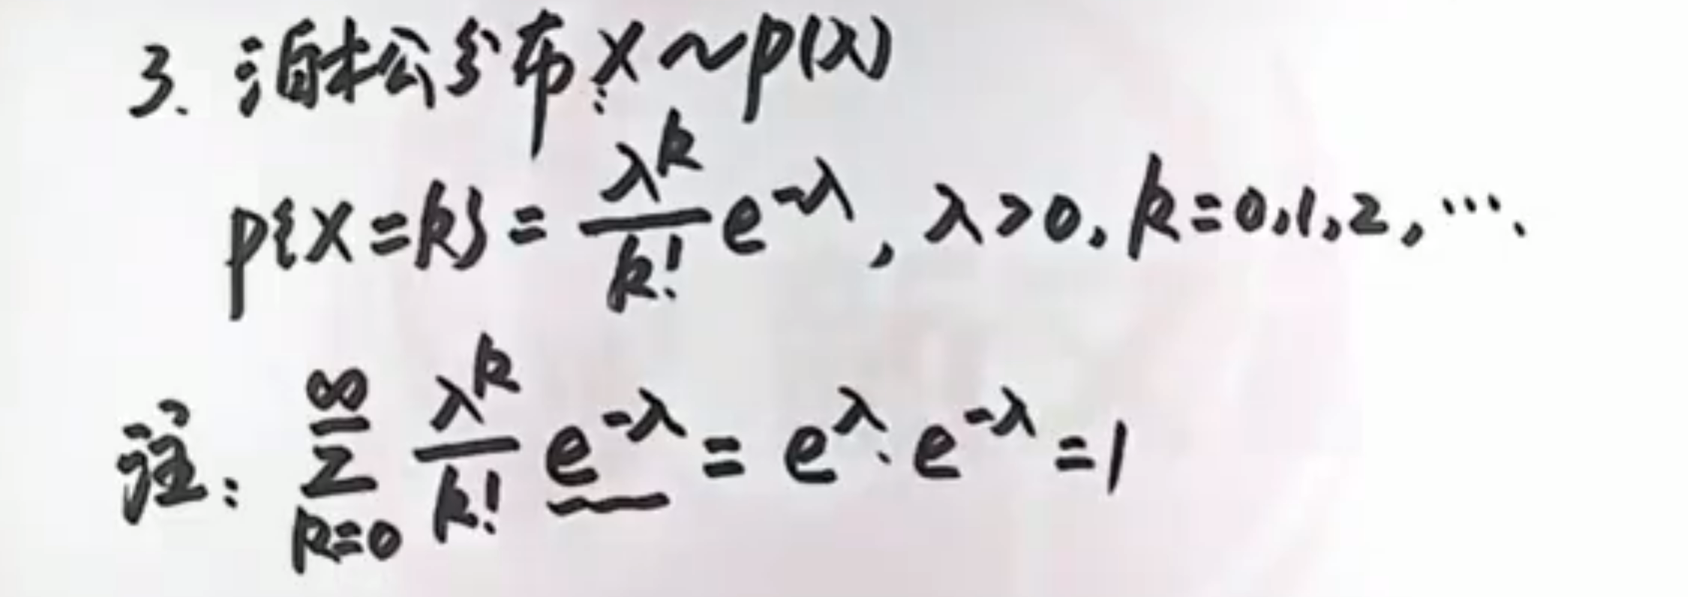 3. 泊松分布: X~P(λ)
P{X=k} = \frac{λ^k}{k!} e^{-λ}, λ>0, k=0,1,2,….
注: \sum_{k=0}^{∞} \frac{λ^k}{k!} e^{-λ} = e^{λ}·e^{-λ} = 1